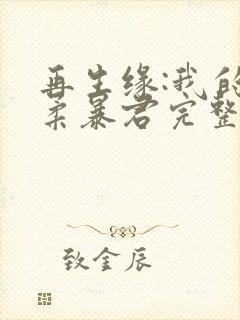 再生缘:我的
柔暴君完整
致金辰